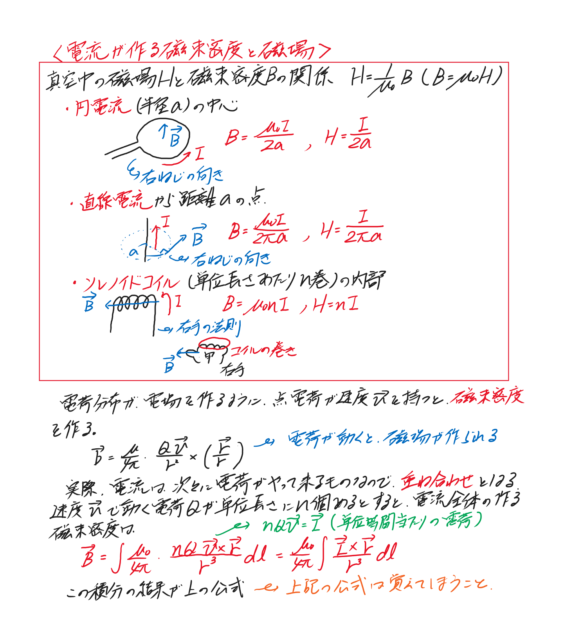 <電流が作る磁束密度と磁場>
真空中の磁場Hと磁束密度Bの関係 H=1/μ₀ B (B=μ₀H)
・円電流(半径a)の中心
B=μ₀I/2a , H=I/2a
B→
I
右ねじの向き
・直線電流から距離aの点
I
B→
a
B=μ₀I/2πa , H=I/2πa
右ねじの向き
・ソレノイドコイル(単位長さあたりn巻)の内部
B→
I
B=μ₀nI , H=nI
右手の法則
コイルの巻き
B→
甲
右手
電荷分布が電場を作るように、点電荷が速度v→を持つと、磁束密度
を作る。
B→=μ/4π・Qv→/r²×(r→/r)
電荷が動くと、磁場が作られる
実際、電流は、次々に電荷がやって来るものなので、重ね合わせとなる
速度v→で動く電荷Qが単位長さにn個あるとすると、電流全体の作る
磁束密度は、
nQv→=I→(単位時間当たりの電荷)
B→=∫μ₀/4π・nQv→×r→/r³ dl=μ₀/4π∫I→×r→/r³ dl
この積分の結果が上の公式
上記の公式は覚えてしまうこと.